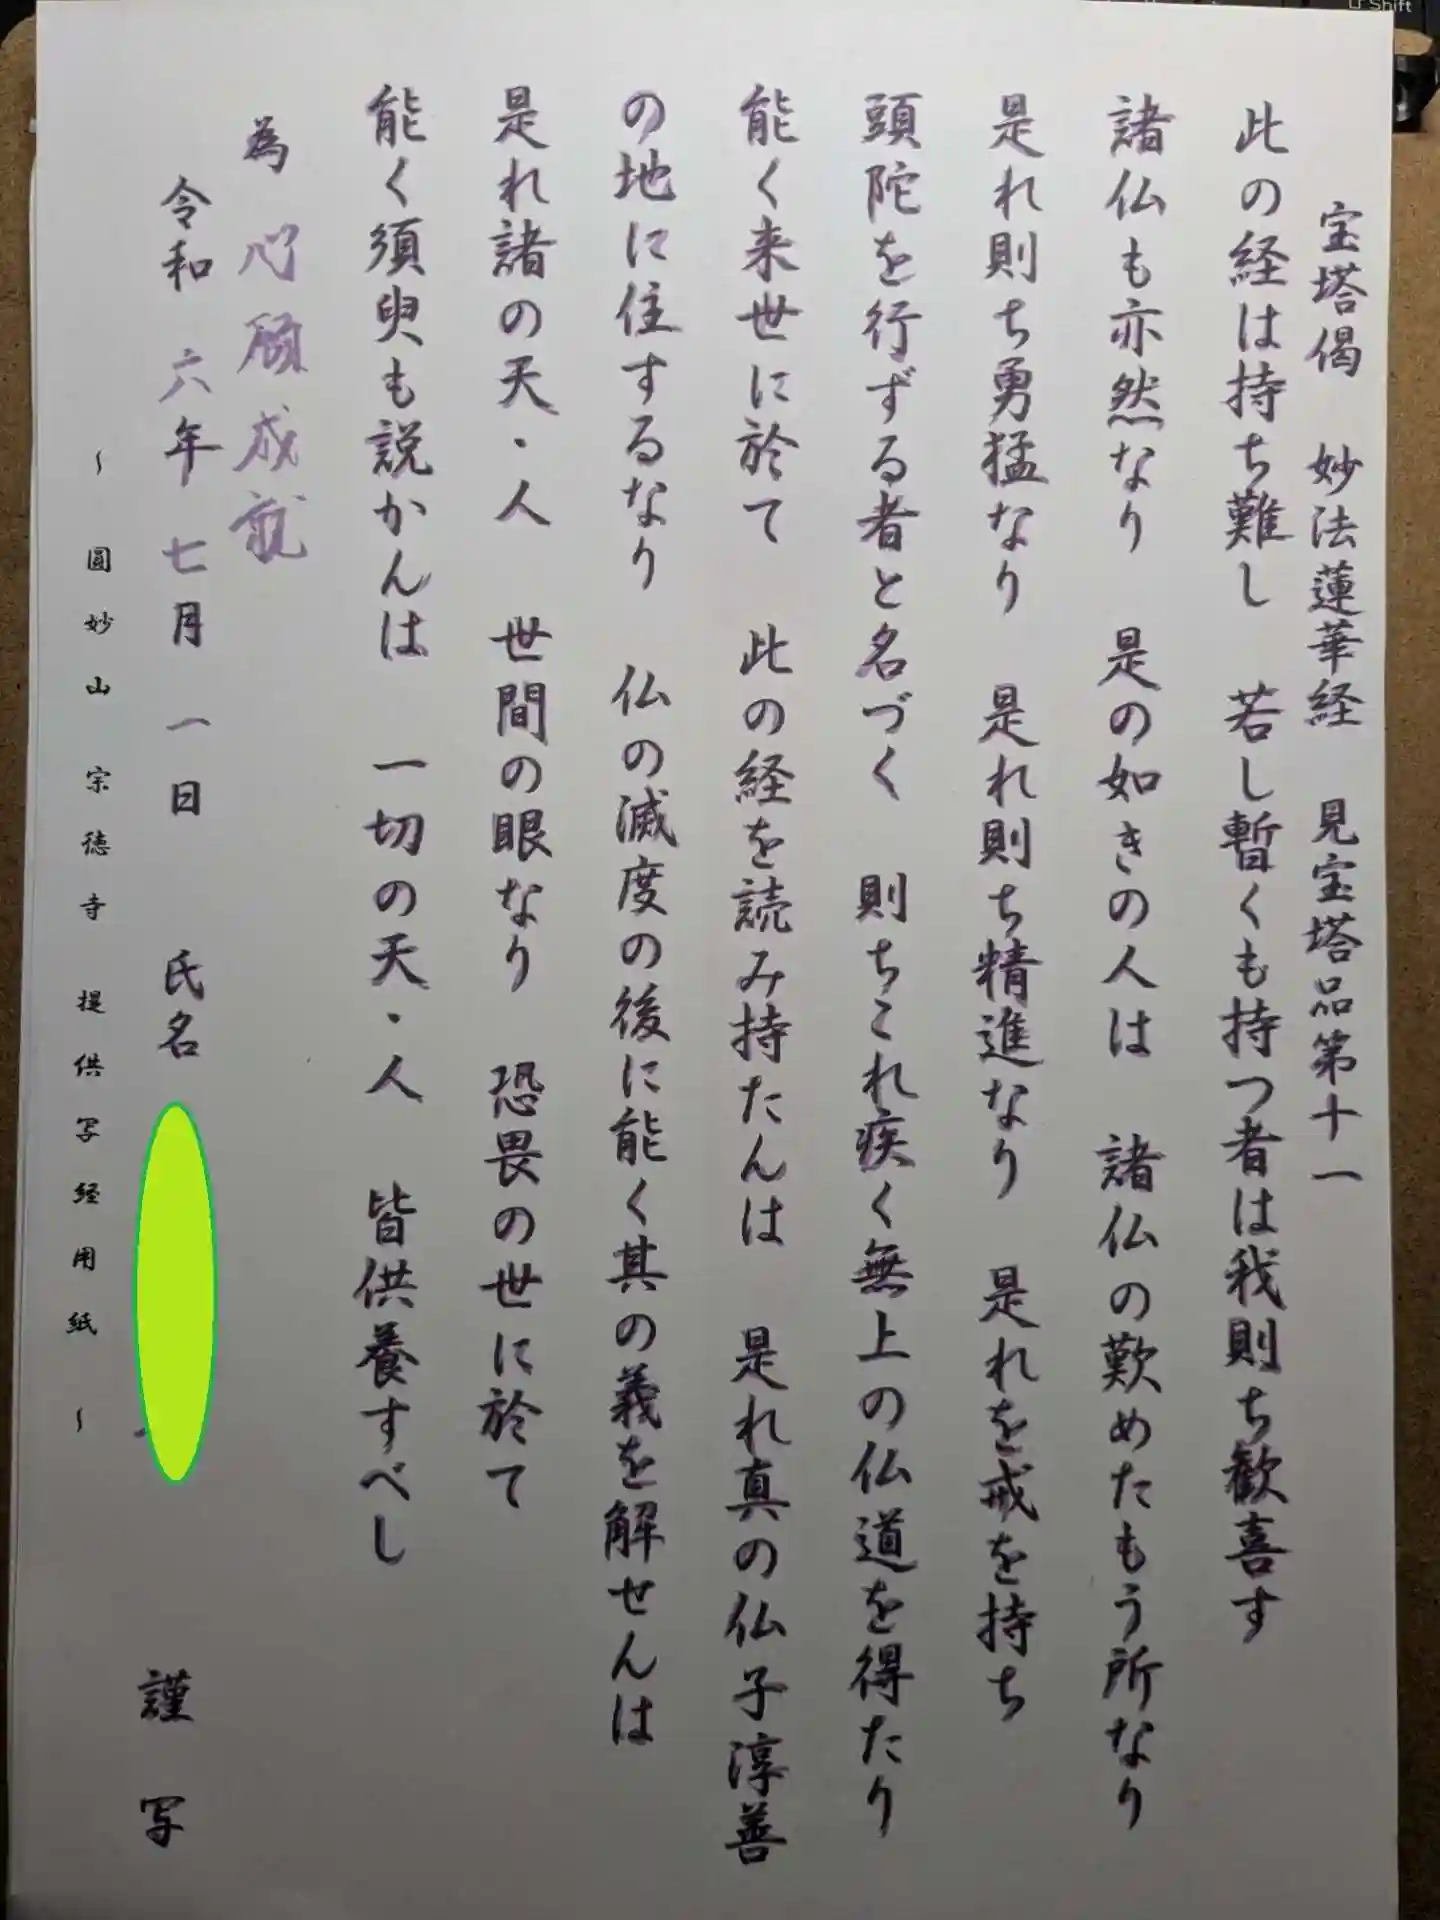 宝塔偈 妙法蓮華経 見宝塔品第十一
此の経は持ち難し 若し暫くも持つ者は我則ち歓喜す
諸仏も亦然なり 是の如きの人は 諸仏の歎めたもう所なり
是れ則ち勇猛なり 是れ則ち精進なり 是れを戒を持ち
頭陀を行ずる者と名づく 則ちこれ疾く無上の仏道を得たり
能く来世に於て 此の経を読み持たんは 是れ真の仏子淳善
の地に住するなり 仏の滅度の後に能く其の義を解せんは
是れ諸の天・人 世間の眼なり 恐畏の世に於て
能く須臾も説かんは 一切の天・人 皆供養すべし
為 心願成就
令和 六年 七月 一日 氏名 謹写
~ 圓妙山 宗徳寺 提供写経用紙 ~
Shift